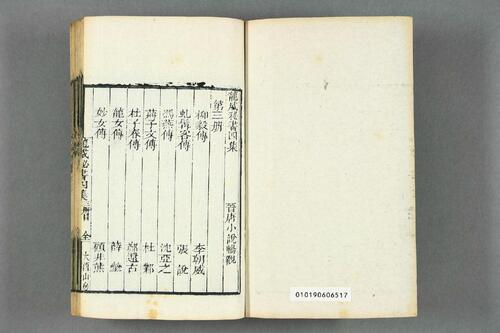 龍威秘書四集 晉唐小說暢觀
第三冊
柳毅傳 李朝威
虬髯客傳 張說
馮燕傳 沈亞之
蔣子文傳 杜鄴？
杜子春傳 鄭還古
龍女傳 薛瑩
妙女傳 顧非熊
龍威秘書四集 三冊 全 大酉山房
010190606517